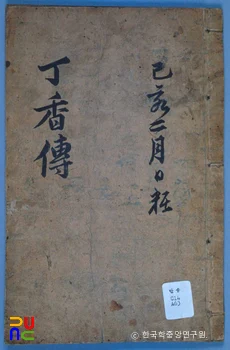 丁香傳
己亥二月日粧
ⓒ 한국학중앙연구원